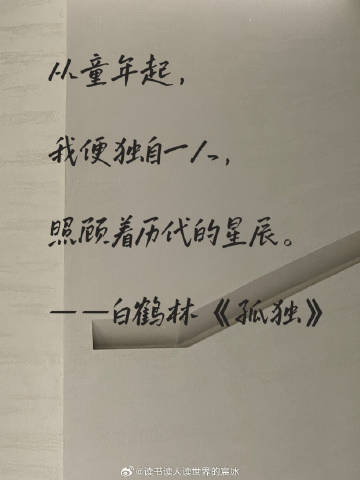 从童年起，
我便独自一人，
照顾着历代的星辰。
——白鹤林《孤独》
@读书读人读世界的宸冰